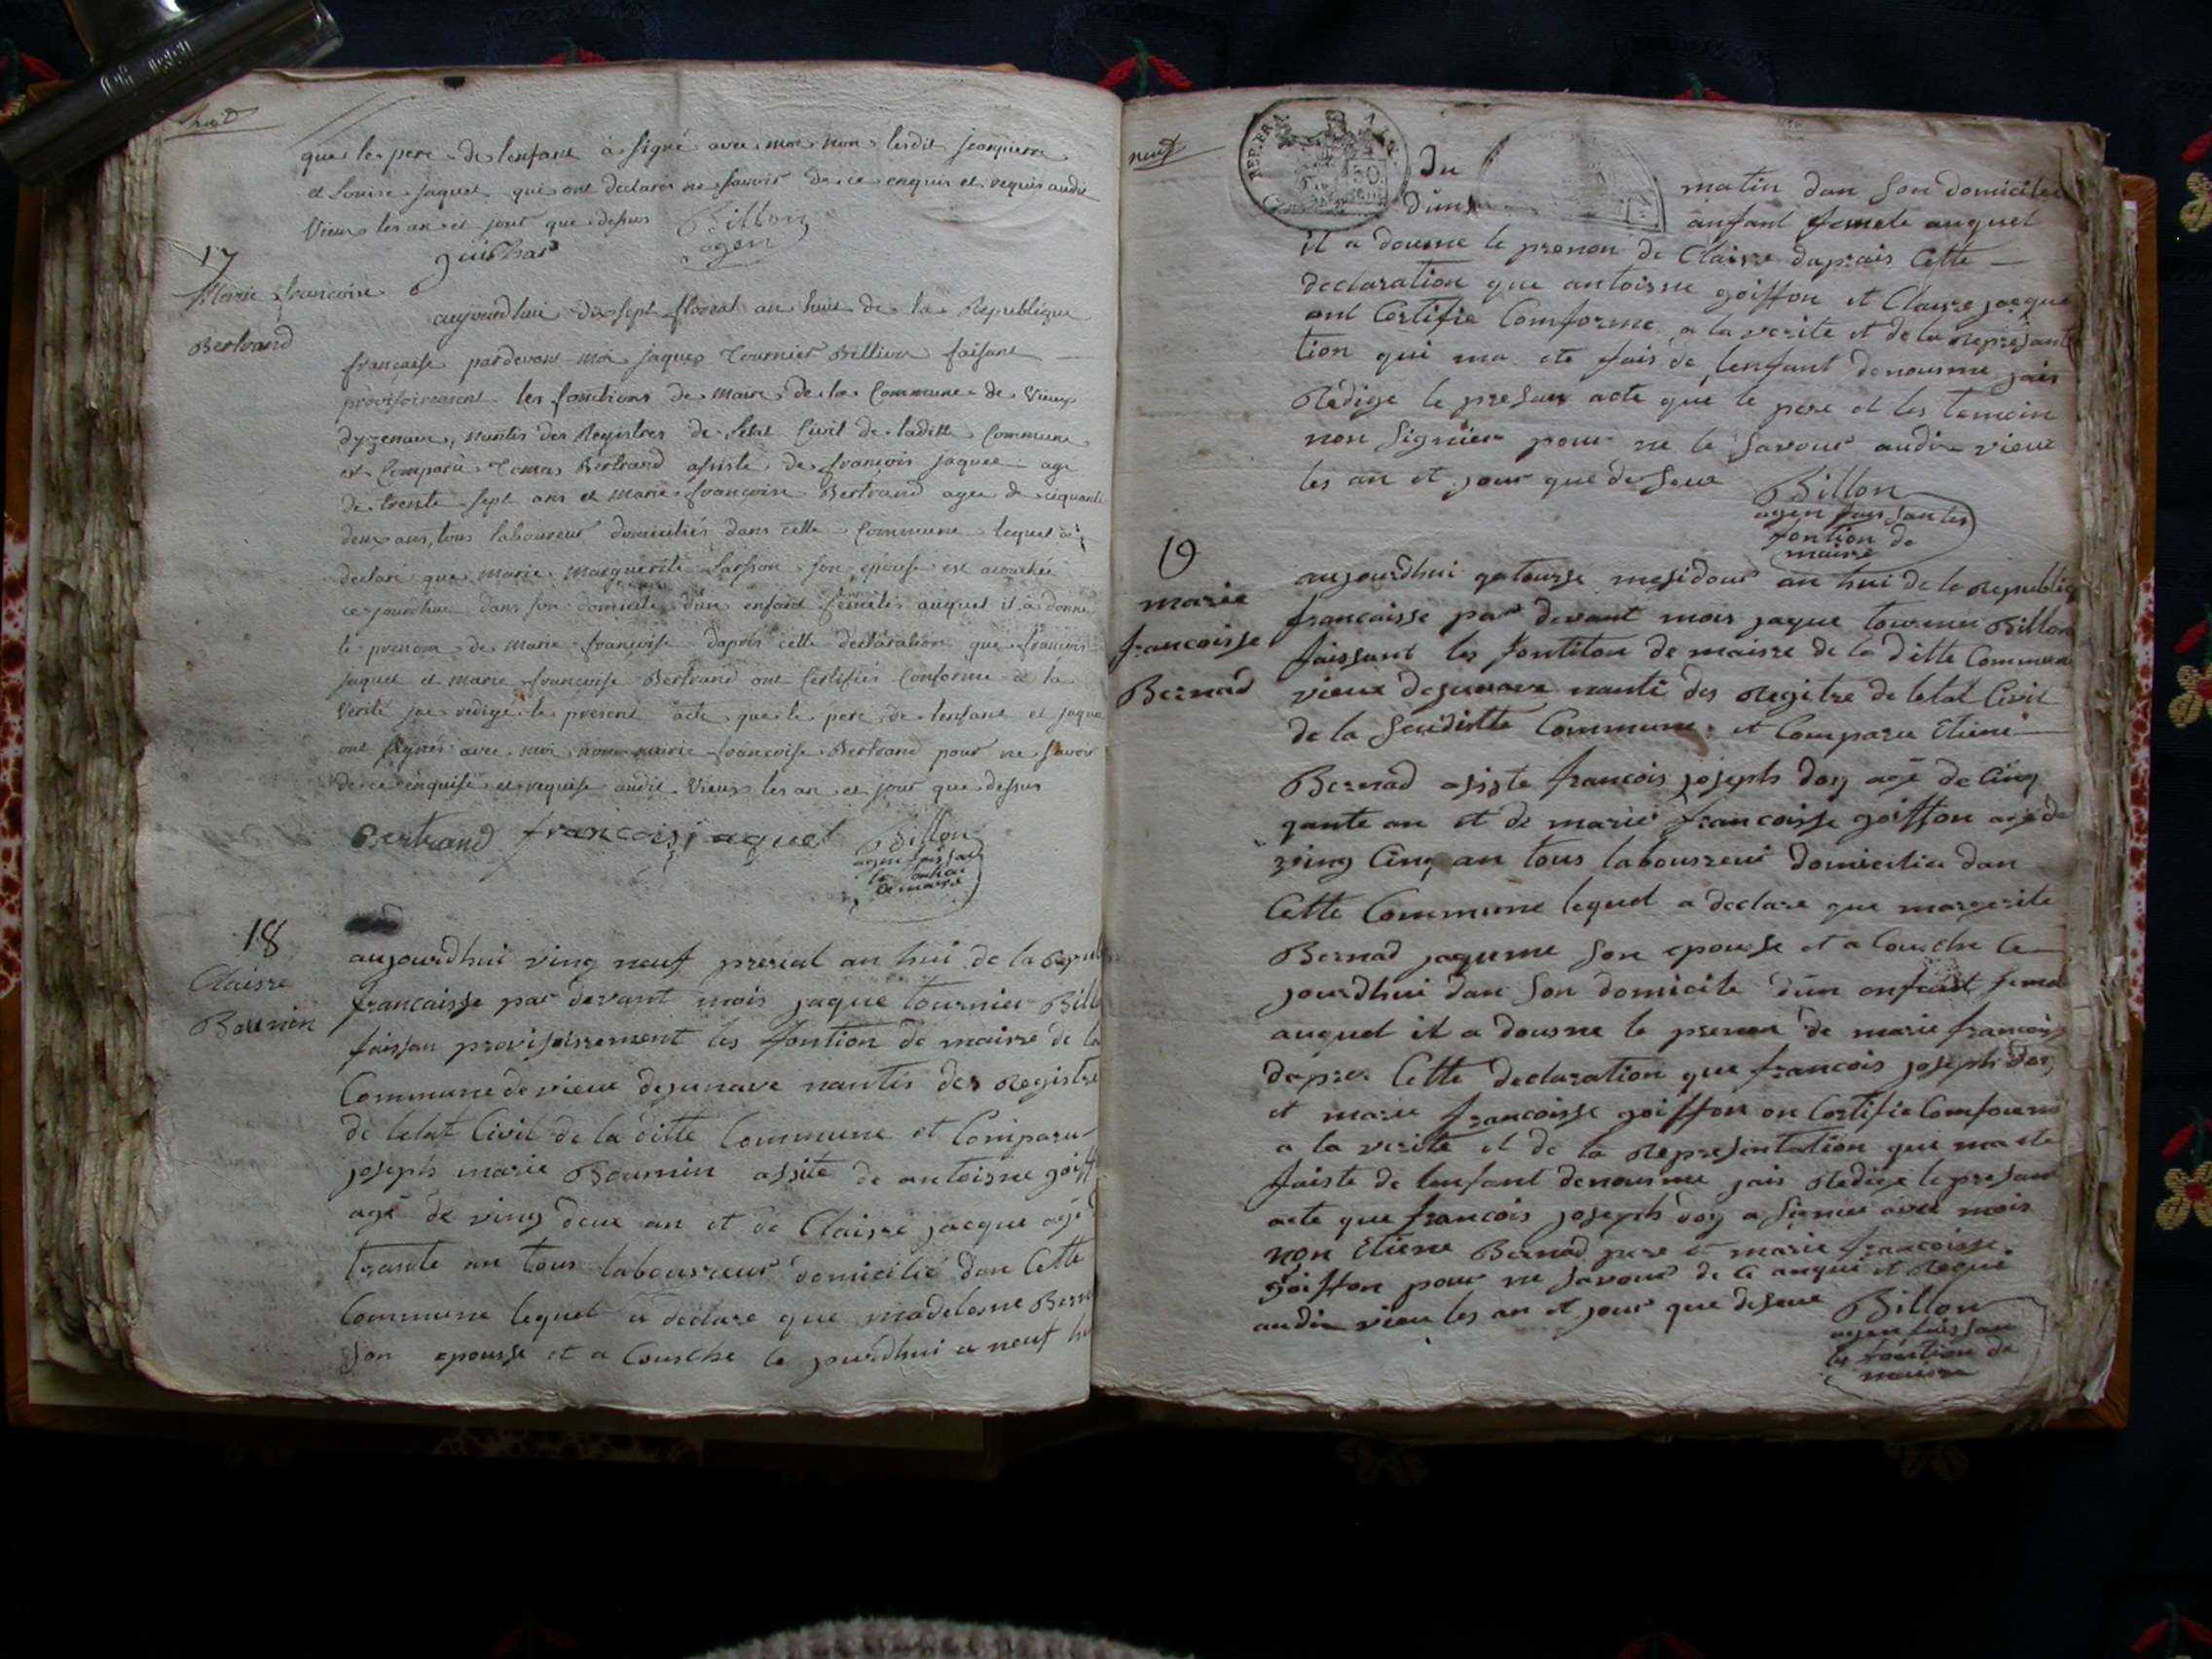 huit
que le pere de lenfant à signé avec moi non lesdit jeanpierre
et Louise jaquet qui ont declarés ne savoir de ce enquis et requis audit
Vieux les an et jour que dessus Billon
agen
17
Marie francoise
Bertrand
aujourdhui dixsept floreal an huit de la Republique
francaise pardevant moi jaques Tournier Billion faisant
provisoirement les fonctions de Maire de la Commune de Vieux
dyzenave, nantis des Registres de letat Civil de laditte Commune
est Comparu Bertrand assisté de francois jaquet age
de trente sept ans et marie francoise Bertrand agee de ciquante
deux ans, tous laboureur domiciliés dans cette Commune lequel à
declaré que Marie Margueritte son epouse est acouchée
cejourdhui dans son domicile dun enfant femelle auquel il à donné
le prenom de Marie francoise daprès cette declaration que francois
jaquet et marie francoise Bertrand ont Certifiés Conforme à la
Verité jai redigé le present acte que le pere de lenfant et jaquet
ont signés avec moi non marie francoise Bertrand pour ne savoir
de ce enquise et requise audit Vieux les an et jour que dessus
Bertrand francois jaquet Billon
agen faissan
les fontion
de maire
18
Claisre
Bounin
aujourdhui ving neuf prerial an hui de la Repub
francaisse par devant mois jaque tournier Bill
faissan provisoisrement les fontion de maisre de la
Commune de vieux desunave nantis des Registre
de letat Civil de la ditte Commune et Comparu
joseph marie Bounin assite de antoisne goiff
agé de ving deux an et de Claisre jacque agé d
trante an tous labousreur domicilié dan Cette
Commune lequel a declare que madelesne Bern
son epousse et a Cousche le jourdhui a neuf he
neuf
REP. FRA.
Du matin dan son domicile
dun anfant femele auquel
il a dousne le prenon de Claisre daprais Cette
declaration que antoisne goiffon et Claisre jacque
ont Certifie Comforme a la verite et de la Represanta
tion qui ma ete fais de lenfant denousme jais
Redige le presan acte que le pere et les temoin
non signier pour ne le savour audi vieux
les an et jour que deseux Billon
agen fais san les
fontion de
maisre
19
marie
francoisse
Bernad
aujourdhui qatourse mesidour an hui de la Republiq
francaisse par devant mois jaque tournier Billon
faissant les fontiton de maisre de la ditte Commune
vieux desunave nanti des Registre de letat Civil
de la Seuditte Commune et Comparu Etiene
Bernad assiste francois joseph doy agé de Cinq
qante an et de marie francoisse goiffon agé de
ving Cinq an tous labousreur domicilie dan
Cette Commune lequel a declare que margerite
Bernad jaqueme son epousse et a Cousche Ce
jourdhui dan son domicile dun enfant femel
auquel il a dousne le prenon de marie francoiss
dapre Cette declaration que francois joseph doy
et marie francoisse goiffon on Certifie Comfourme
a la verite et de la Representation qui ma ete
faiste de lenfant denousme jais Redige le presan
acte que francois joseph doy a signee avec mois
non Etiene Bernad pere et marie francoisse
goiffon pour ne savour de ce anqui et Reque
audi vieu les an et jour que deseue Billon
agen faissan
les fontion de
maisre